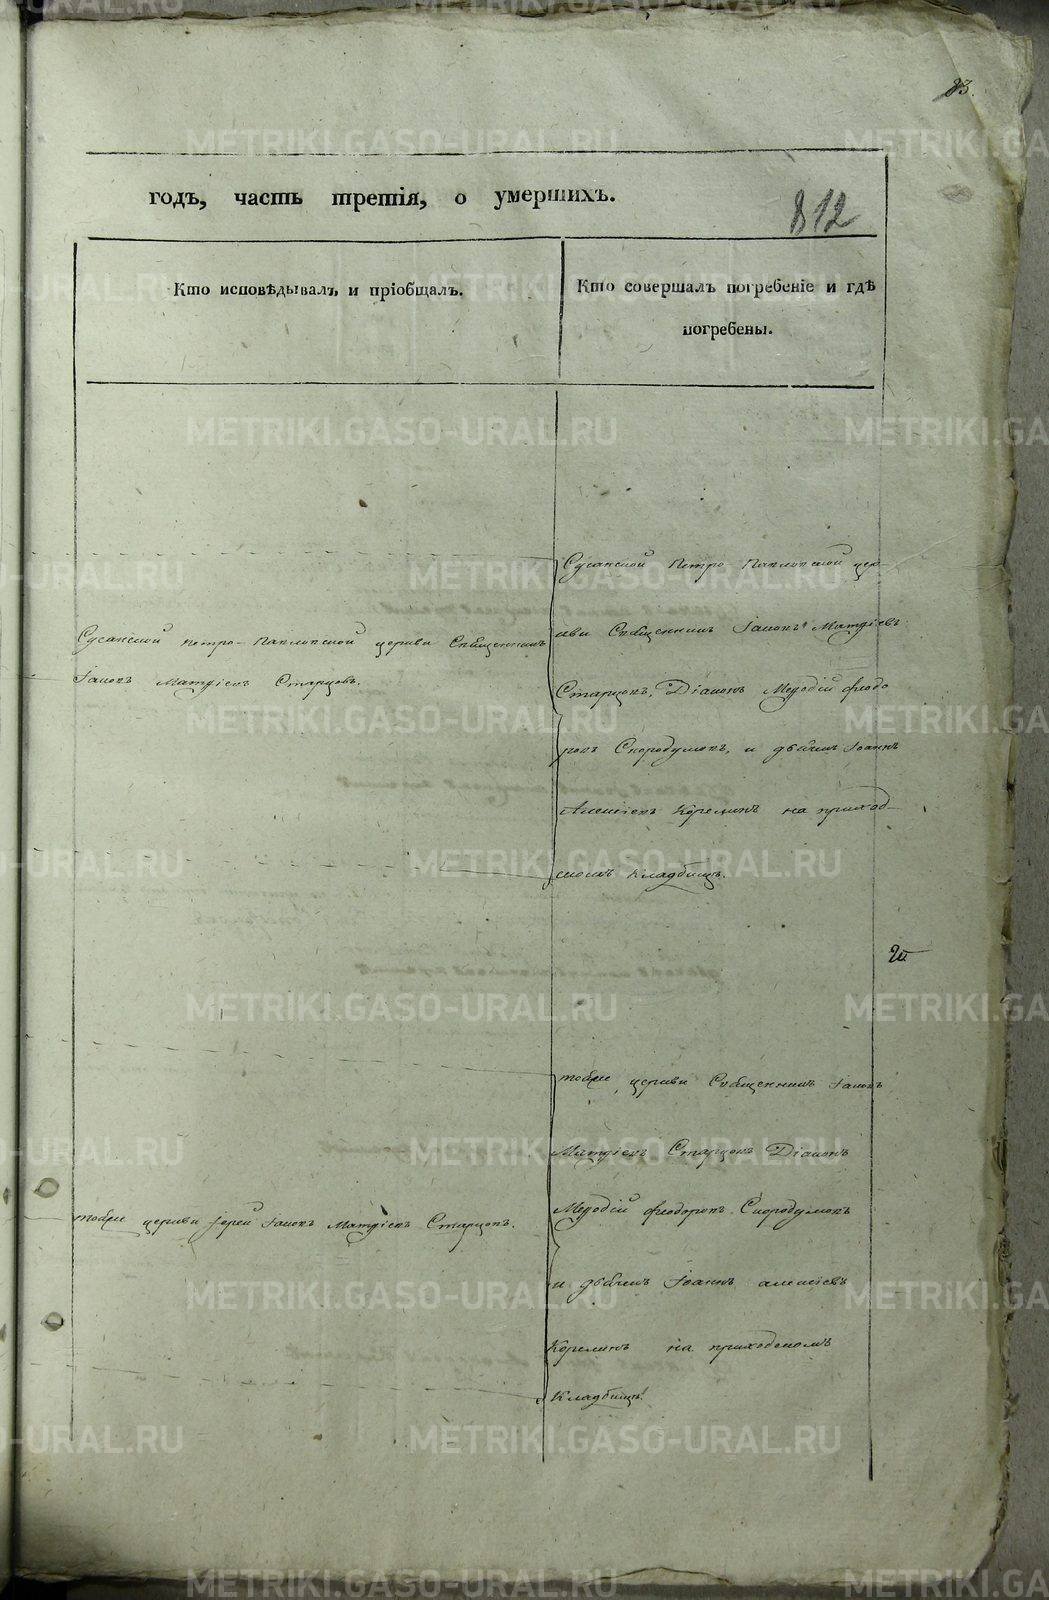 83.
годъ, часть третія, о умершихъ.
812
Кто исповѣдывалъ и пріобщалъ.
Кто совершалъ погребеніе и гдѣ
погребены.
Сусанской Петро-Павловской церкви Священникъ
Іаковъ Матѳіевъ Старцовъ.
Сусанской Петро-Павловской цер-
кви Священникъ Іаковъ Матѳіевъ
Старцовъ, Діаконъ Меѳодій Ѳеодо
ровъ Скородумовъ, и дьячекъ Іоаннъ
Алексіевъ Корелинъ на приход-
скомъ кладбищѣ.
тойже церкви Іерей Іаковъ Матѳіевъ Старцовъ.
тойже церкви Священникъ Іаковъ
Матѳіевъ Старцовъ Діаконъ
Меѳодій Ѳеодоровъ Скородумовъ
и дьячекъ Іоаннъ алексіевъ
Корелинъ на приходскомъ
Кладбищѣ.
METRIKI.GASO-URAL.RU